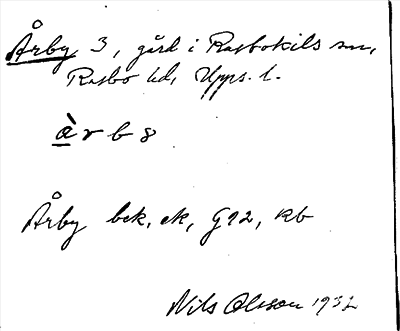 Årby 3, gård i Rasbokils sn,
Rasbo hd, Upps. l.
àrb8
Årby bek, ek, G12, kb
Nils Olsson 1932